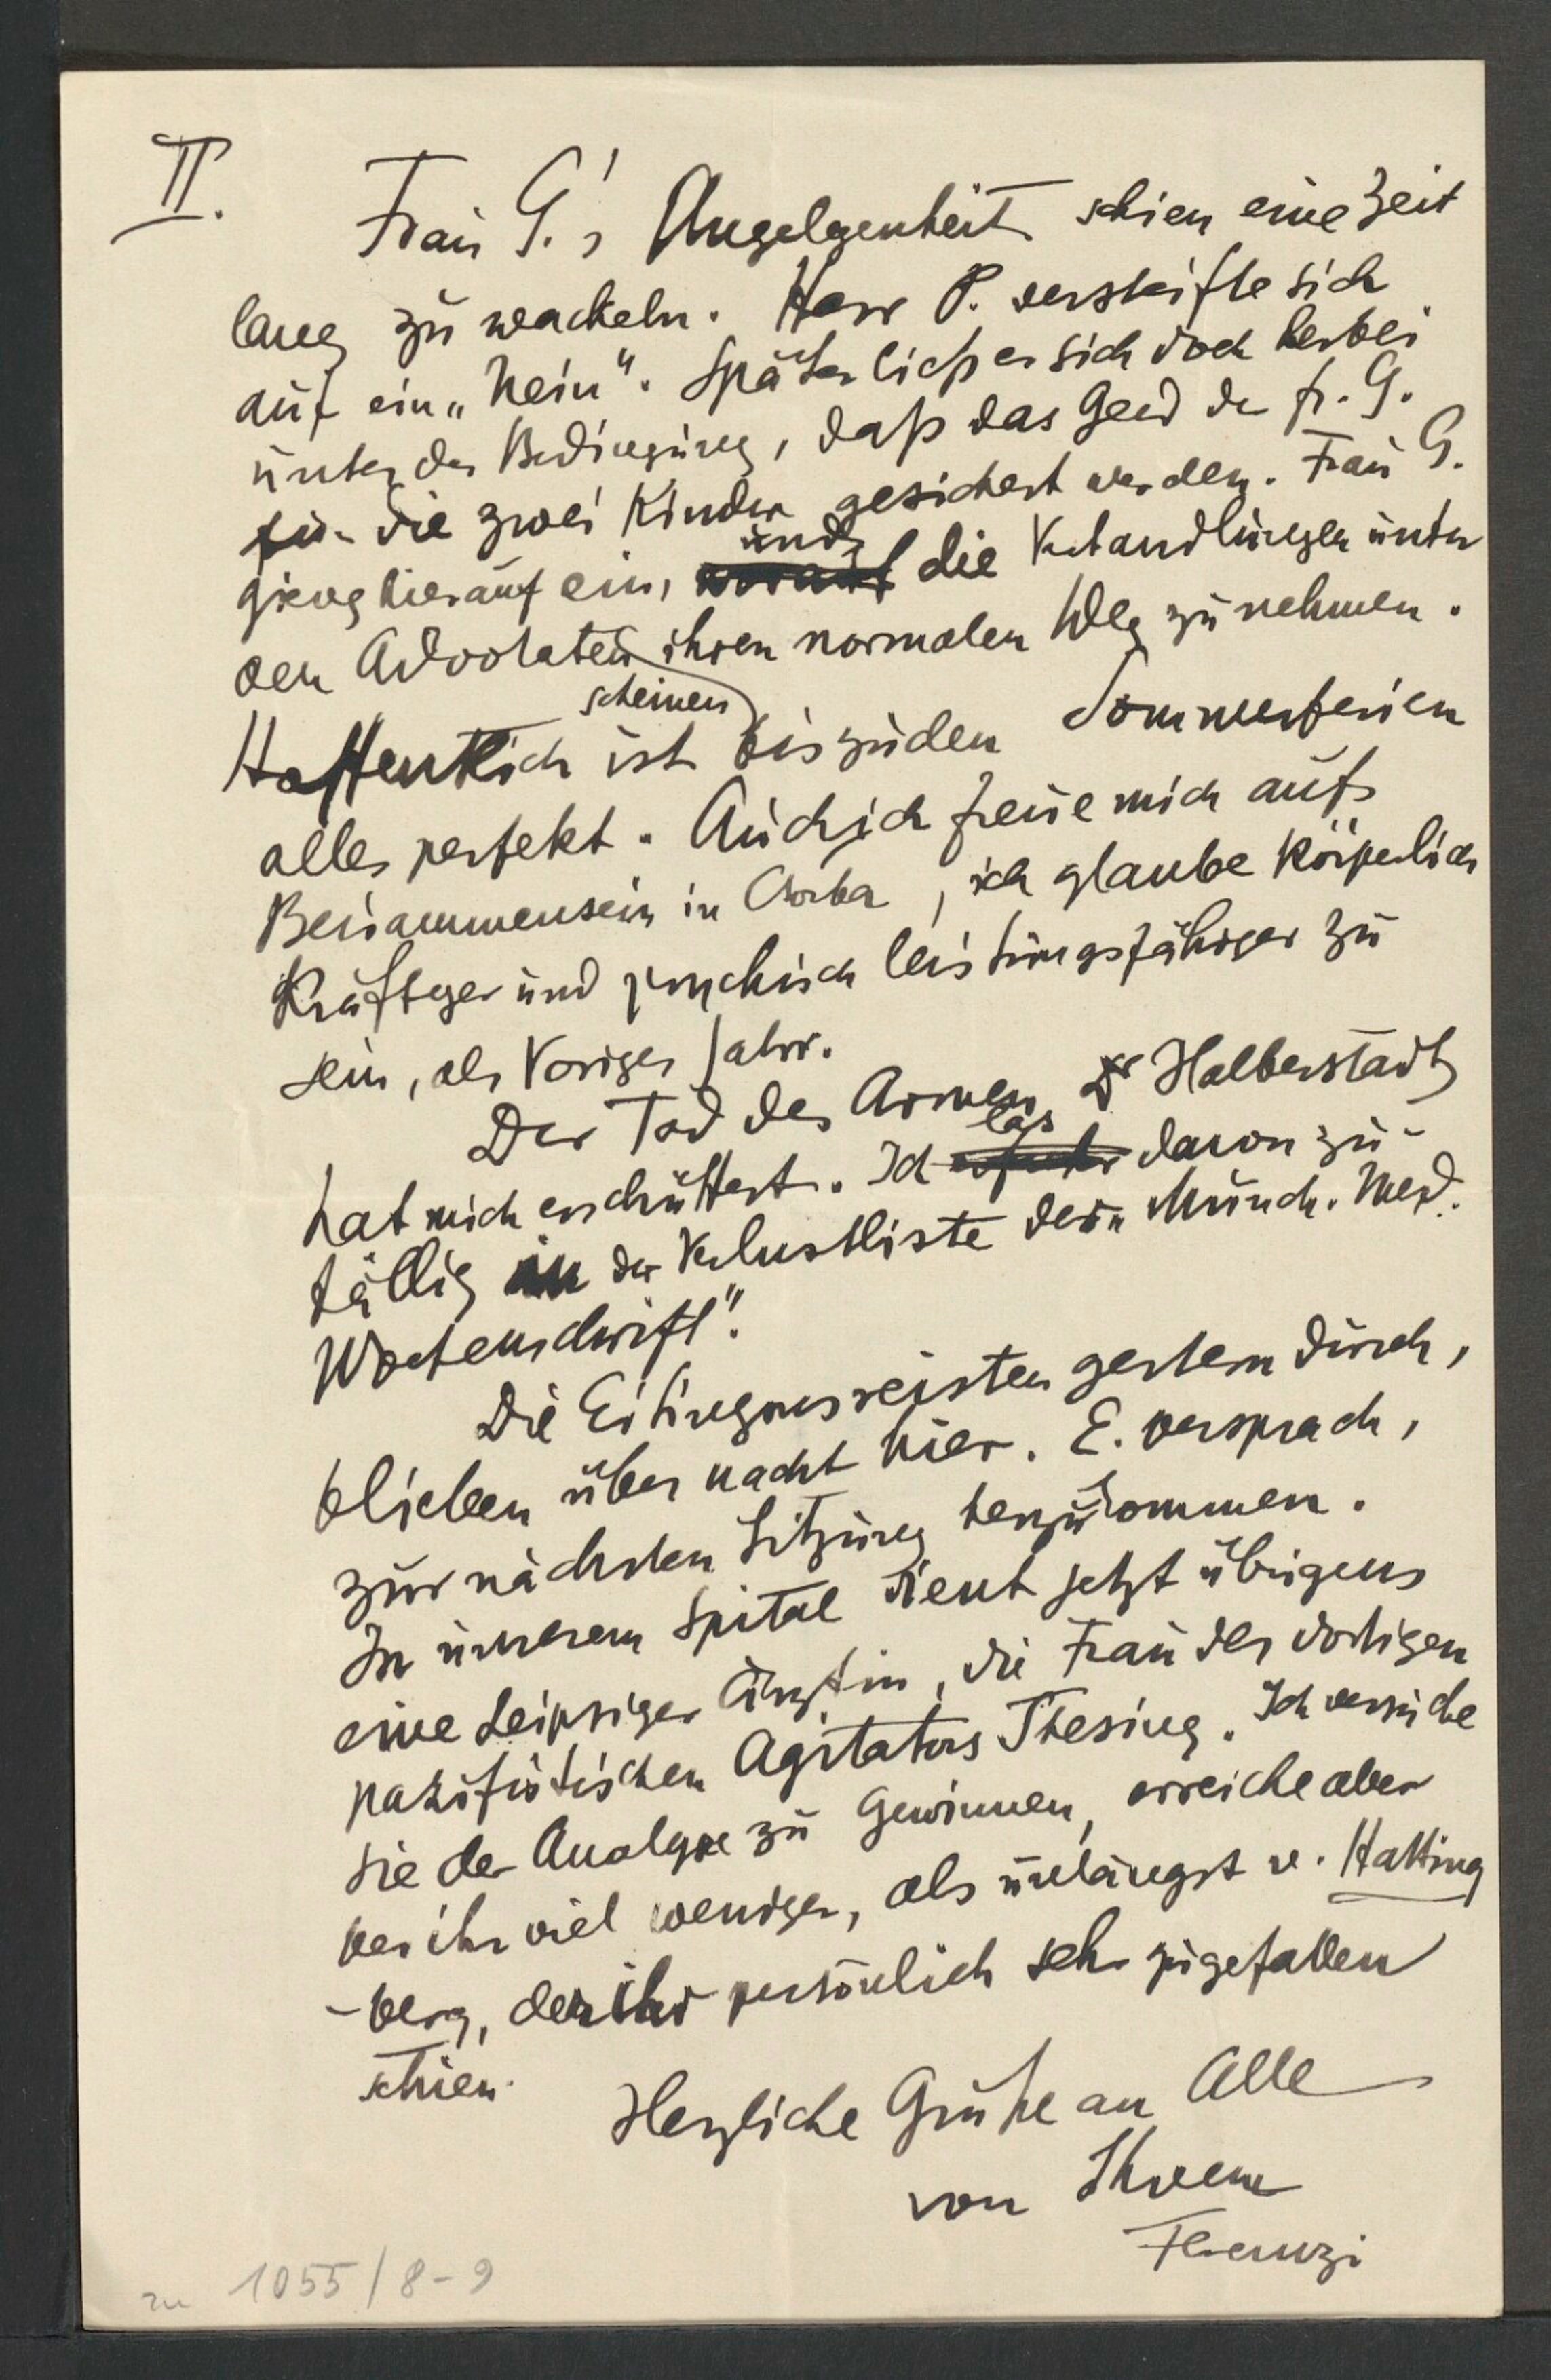 II.
Frau G.'s Angelegenheit schien eine Zeit
lang zu wackeln. Herr P. versteifte sich
auf ein „Nein“. Später ließ er sich doch herbei
unter der Bedingung, daß das Geld der Fr. G.
für die zwei Kinder gesichert werden. Frau G.
gieng hierauf ein, und die Verhandlungen unter
den Advokaten scheinen ihren normalen Weg zu nehmen.
Hoffentlich ist bis zu den Sommerferien
alles perfekt. Auch ich freue mich aufs
Beisammensein in Csorba, ich glaube körperlich
kräftiger und psychisch leistungsfähiger zu
sein, als Voriges Jahr.
Der Tod des Armen Dr Halberstadt
hat mich erschüttert. Ich las davon zu-
fällig in der Verlustliste der „Münch. Med.
Wochenschrift“.
Die Eitingons reisten gestern durch,
blieben über nacht hier. E. versprach,
zur nächsten Sitzung herzukommen.
In unserem Spital dient jetzt übrigens
eine Leipziger Ärztin, die Frau des dortigen
pazifistischen Agitators Thesing. Ich versuche
sie der Analyse zu gewinnen, erreiche aber
bei ihr viel weniger, als unlängst v. Hatting
-berg, der ihr persönlich sehr zugefallen
schien.
Herzliche Grüße an Alle
von Ihrem
Ferenczi
zu 1055/8-9